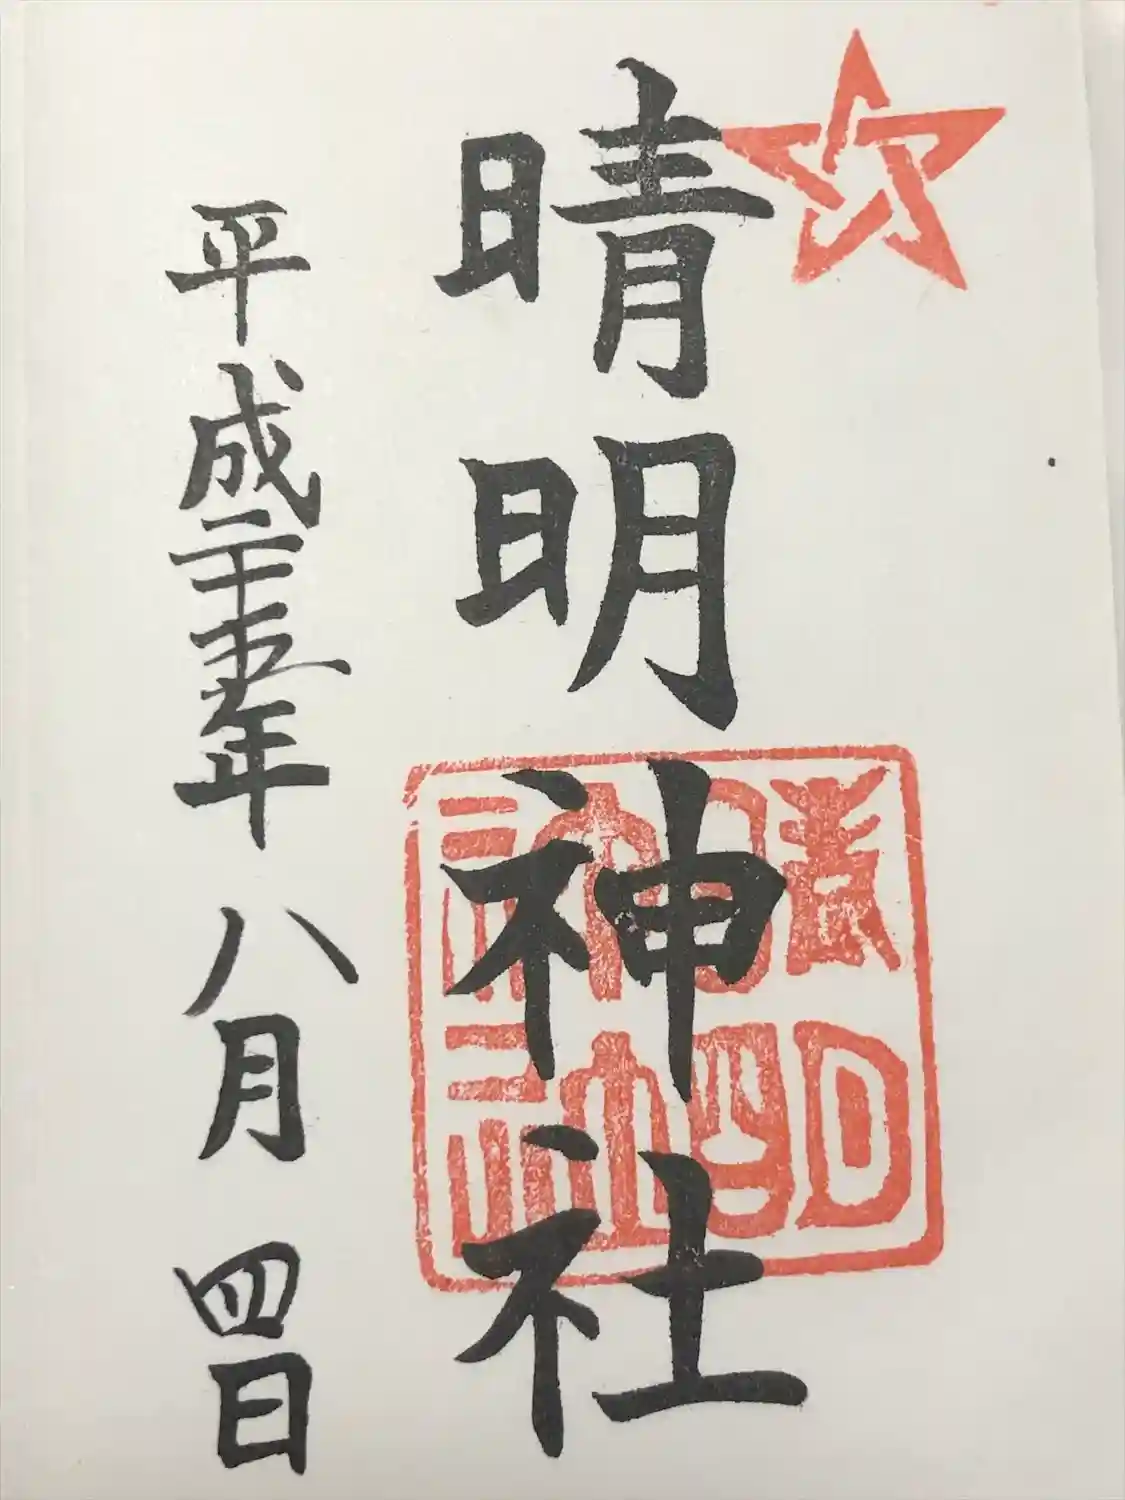 晴明神社
晴明神社
平成二十五年八月四日